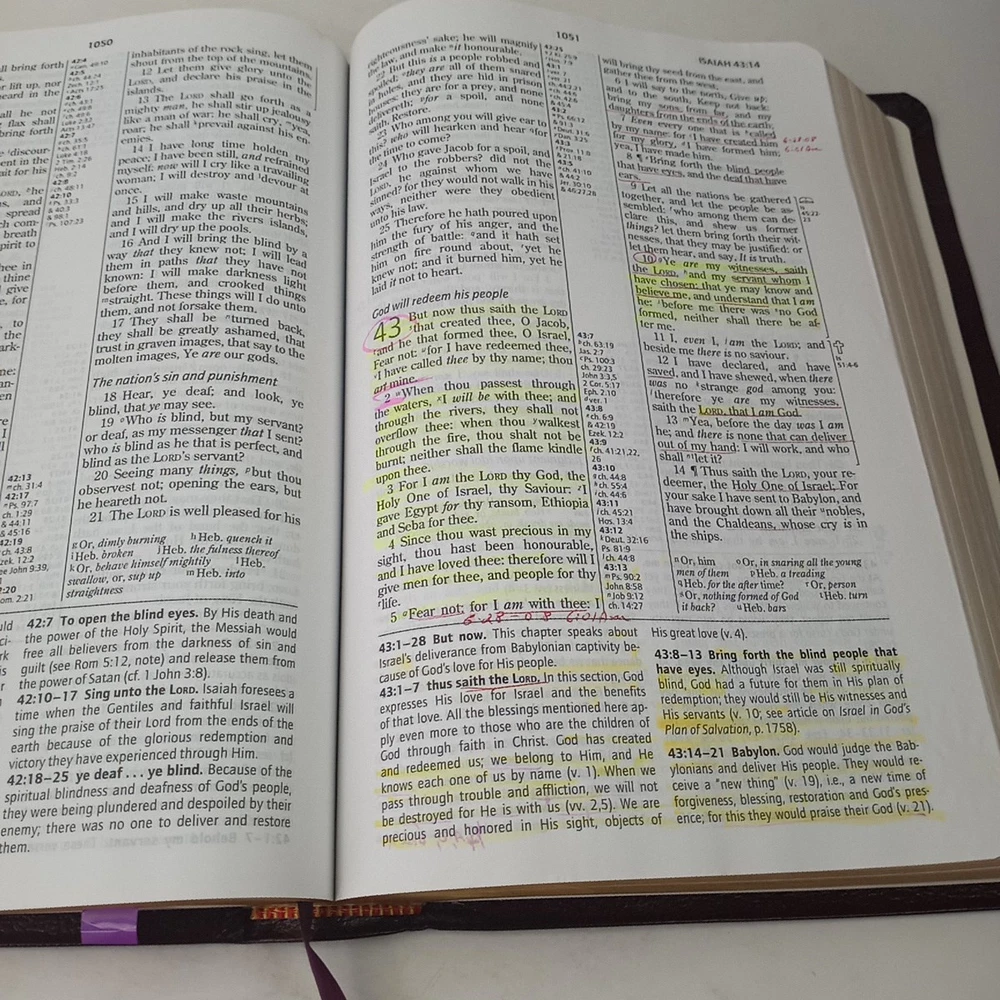 1050
inhabitants of the rock sing, let them
shout from the top of the mountains.
12 Let them give glory unto the
LORD, and declare his praise in the
islands.
13 The LORD shall go forth as a
mighty man, he shall stir up jealousy
like a man of war: he shall cry, yea,
roar; he shall prevail against his en-
emies.
14 I have long time holden my
peace; I have been still, and refrained
myself: now will I cry like a travailing
woman; I will destroy and devour at
once.
15 I will make waste mountains
and hills, and dry up all their herbs;
and I will make the rivers islands,
and I will dry up the pools.
16 And I will bring the blind by a
way that they knew not; I will lead
them in paths that they have not
known: I will make darkness light
before them, and crooked things
straight. These things will I do unto
them, and not forsake them.
17 They shall be turned back,
they shall be greatly ashamed, that
trust in graven images, that say to the
molten images, Ye are our gods.
The nation's sin and punishment
18 Hear, ye deaf; and look, ye
blind, that ye may see.
19 Who is blind, but my servant?
or deaf, as my messenger that I sent?
who is blind as he that is perfect, and
blind as the LORD's servant?
20 Seeing many things, but thou
observest not; opening the ears, but
he heareth not.
21 The LORD is well pleased for his
g Or, dimly burning h Heb. quench it
i Heb. broken j Heb. the fulness thereof
k Or, behave himself mightily l Heb.
swallow, or, sup up m Heb. into
straightness
42:7 To open the blind eyes. By His death and
the power of the Holy Spirit, the Messiah would
free all believers from the darkness of sin and
guilt (see Rom 5:12, note) and release them from
the power of Satan (cf. 1 John 3:8).
42:10–17 Sing unto the LORD. Isaiah foresees a
time when the Gentiles and faithful Israel will
sing the praise of their Lord from the ends of the
earth because of the glorious redemption and
victory they have experienced through Him.
42:18–25 ye deaf . . . ye blind. Because of the
spiritual blindness and deafness of God's people,
they were being plundered and despoiled by their
enemy; there was no one to deliver and restore
them.
1051
righteousness' sake; he will magnify
the law, and make it honourable.
22 But this is a people robbed and
spoiled; they are all of them snared
in holes, and they are hid in prison
houses: they are for a prey, and none
delivereth; for a spoil, and none
saith, Restore.
23 Who among you will give ear to
this? who will hearken and hear for
the time to come?
24 Who gave Jacob for a spoil, and
Israel to the robbers? did not the
LORD, he against whom we have
sinned? for they would not walk in his
ways, neither were they obedient
unto his law.
25 Therefore he hath poured upon
him the fury of his anger, and the
strength of battle: and it hath set
him on fire round about, yet he
knew not; and it burned him, yet he
laid it not to heart.
God will redeem his people
43 But now thus saith the LORD
that created thee, O Jacob,
and he that formed thee, O Israel,
Fear not: for I have redeemed thee,
I have called thee by thy name; thou
art mine.
2 When thou passest through
the waters, I will be with thee; and
through the rivers, they shall not
overflow thee: when thou walkest
through the fire, thou shalt not be
burnt; neither shall the flame kindle
upon thee.
3 For I am the LORD thy God, the
Holy One of Israel, thy Saviour: I
gave Egypt for thy ransom, Ethiopia
and Seba for thee.
4 Since thou wast precious in my
sight, thou hast been honourable,
and I have loved thee: therefore will I
give men for thee, and people for thy
life.
5 Fear not: for I am with thee: I
6-28-08 6:01Am
43:7
ch. 63:19
Jas. 2:7
Ps. 100:3
ch. 29:23
John 3:3,5
2 Cor. 5:17
Eph. 2:10
ver. 1
43:8
ch. 6:9
& 42:19
Ezek. 12:2
43:9
ch. 41:21,22,
26
43:10
ch. 44:8
ch. 55:4
ch. 44:6
43:11
ch. 45:21
Hos. 13:4
43:12
Deut. 32:16
Ps. 81:9
ch. 44:8
43:13
Ps. 90:2
John 8:58
Job 9:12
ch. 14:27
ISAIAH 43:14
will bring thy seed from the east, and
gather thee from the west;
6 I will say to the north, Give up;
and to the south, Keep not back:
bring my sons from far, and my
daughters from the ends of the earth;
7 Even every one that is called
by my name: for I have created him
for my glory, I have formed him;
yea, I have made him.
6-28-08
6:01Am
8 ¶ Bring forth the blind people
that have eyes, and the deaf that have
ears.
9 Let all the nations be gathered
together, and let the people be as-
sembled: who among them can de-
clare this, and shew us former
things? let them bring forth their wit-
nesses, that they may be justified: or
let them hear, and say, It is truth.
10 Ye are my witnesses, saith
the LORD, and my servant whom I
have chosen: that ye may know and
believe me, and understand that I am
he: before me there was no God
formed, neither shall there be af-
ter me.
11 I, even I, am the LORD; and
beside me there is no saviour.
12 I have declared, and have
saved, and I have shewed, when there
was no strange god among you:
therefore ye are my witnesses,
saith the LORD, that I am God.
13 Yea, before the day was I am
he; and there is none that can deliver
out of my hand: I will work, and who
shall let it?
14 ¶ Thus saith the LORD, your re-
deemer, the Holy One of Israel; For
your sake I have sent to Babylon, and
have brought down all their nobles,
and the Chaldeans, whose cry is in
the ships.
n Or, him o Or, in snaring all the young
men of them p Heb. a treading
q Heb. for the after time? r Or, person
s Or, nothing formed of God t Heb. turn
it back? u Heb. bars
43:1–28 But now. This chapter speaks about
Israel's deliverance from Babylonian captivity be-
cause of God's love for His people.
43:1–7 thus saith the LORD. In this section, God
expresses His love for Israel and the benefits
of that love. All the blessings mentioned here ap-
ply even more to those who are the children of
God through faith in Christ. God has created
and redeemed us; we belong to Him, and He
knows each one of us by name (v. 1). When we
pass through trouble and affliction, we will not
be destroyed for He is with us (vv. 2,5). We are
precious and honored in His sight, objects of
His great love (v. 4).
43:8–13 Bring forth the blind people that
have eyes. Although Israel was still spiritually
blind, God had a future for them in His plan of
redemption; they would still be His witnesses and
His servants (v. 10; see article on Israel in God's
Plan of Salvation, p. 1758).
43:14–21 Babylon. God would judge the Bab-
ylonians and deliver His people. They would re-
ceive a "new thing" (v. 19), i.e., a new time of
forgiveness, blessing, restoration and God's pres-
ence; for this they would praise their God (v. 21).